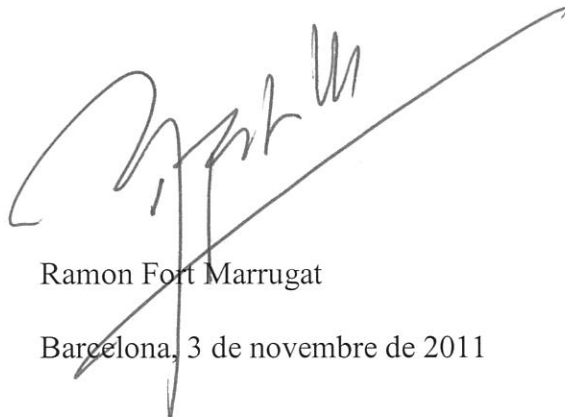 Ramon Fort Marrugat
Barcelona, 3 de novembre de 2011